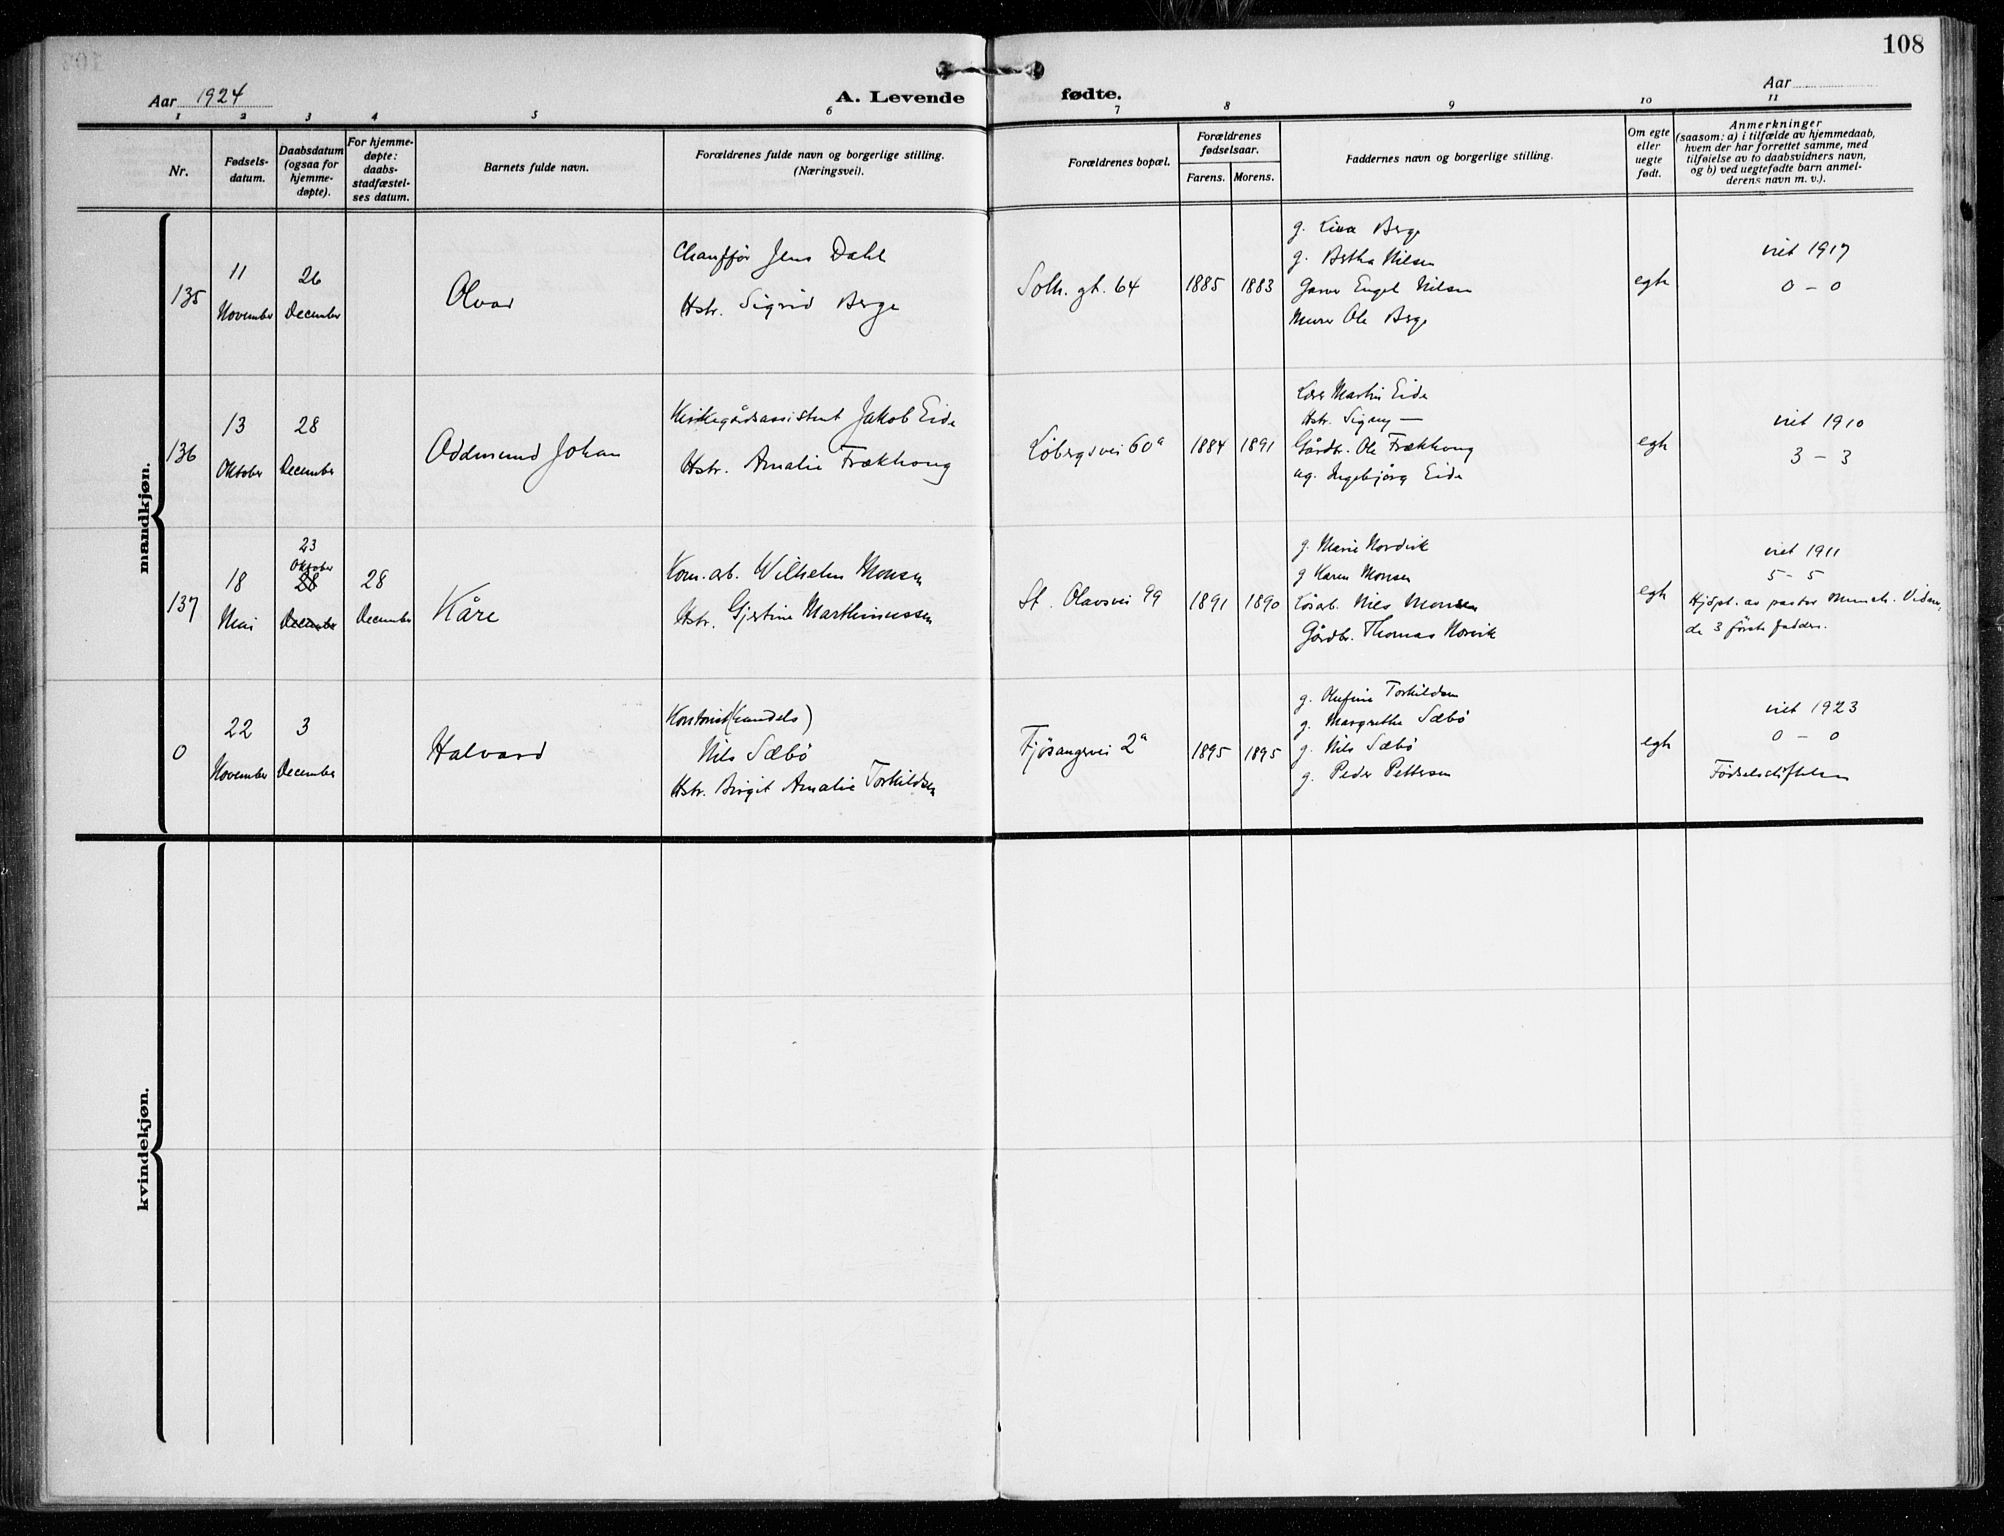 108
Aar 1924
A. Levende fødte.
Aar
1 2 3 4 5 6 7 8 9 10 11
Nr.
Fødsels-
datum.
Daabsdatum
(ogsaa for
hjemme-
døpte).
For hjemme-
døpte:
daabs-
stadfæstel-
ses datum.
Barnets fulde navn.
Forældrenes fulde navn og borgerlige stilling.
(Næringsvei).
Forældrenes bopæl.
Forældrenes
fødselsaar.
Farens. Morens.
Faddernes navn og borgerlige stilling.
Om egte
eller
uegte
født.
Anmerkninger
(saasom: a) i tilfælde av hjemmedaab,
hvem der har forrettet samme, med
tilføielse av to daabsvidners navn,
og b) ved uegtefødte barn anmel-
derens navn m. v.).
mandkjøn.
135
11
November
26
December
Olvar
Chauffør Jens Dahl
Hstr. Sigrid Berge
Solh. gt. 64
1885 1883
g. Lina Berge
g. Bertha Nilsen
Garver Engel Nilsen
Murer Ole Berge
egte
viet 1917
0 - 0
136
13
Oktober
28
December
Oddmund Johan
Kirkegårdsassistent Jakob Eide
Hstr. Amalie Frækhaug
Løbergsvei 60a
1884 1891
Lærer Martin Eide
Hstr. Signy —
Gårdbr. Ole Frækhaug
ug. Ingebjørg Eide
egte
viet 1910
3 - 3
137
18
Mai
23
Oktober
28
December
28
December
Kåre
Kom. arb. Wilhelm Monsen
Hstr. Gjertine Marthinussen
St. Olavsvei 99
1891 1890
g. Marie Nordvik
g Karen Monsen
Løsarb. Nils Monsen
Gårdbr. Thomas Norvik
egte
viet 1911
5 - 5
Hjdpt. av pastor Munch. Vidner,
de 3 første faddere.
0
22
November
3
December
Halvard
Kontorist (handels)
Nils Sæbø
Hstr. Birgit Amalie Torkildsen
Fjøsangervei 2a
1895 1895
g. Olufine Torkildsen
g. Margrethe Sæbø
g. Nils Sæbø
g. Peder Pettersen
egte
viet 1923
0 - 0
Fødselsstiftelsen
kvindekjøn.